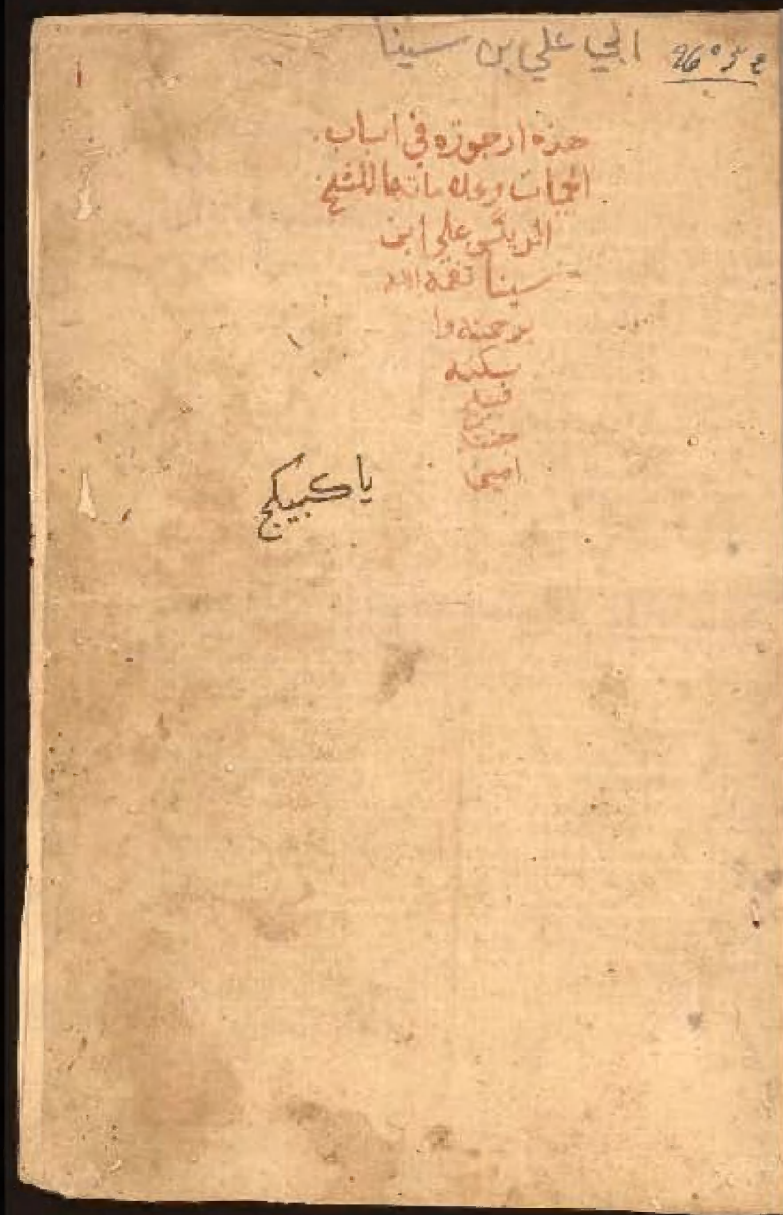 علي بن سينا
هذه ارجوزه في اسباب
الحميات وعلاماتها للشيخ
الرييس علي ابن
سينا تغمده الله
برحمته وا
سكنه
فسيح
جناته
امين
يا كبيكج